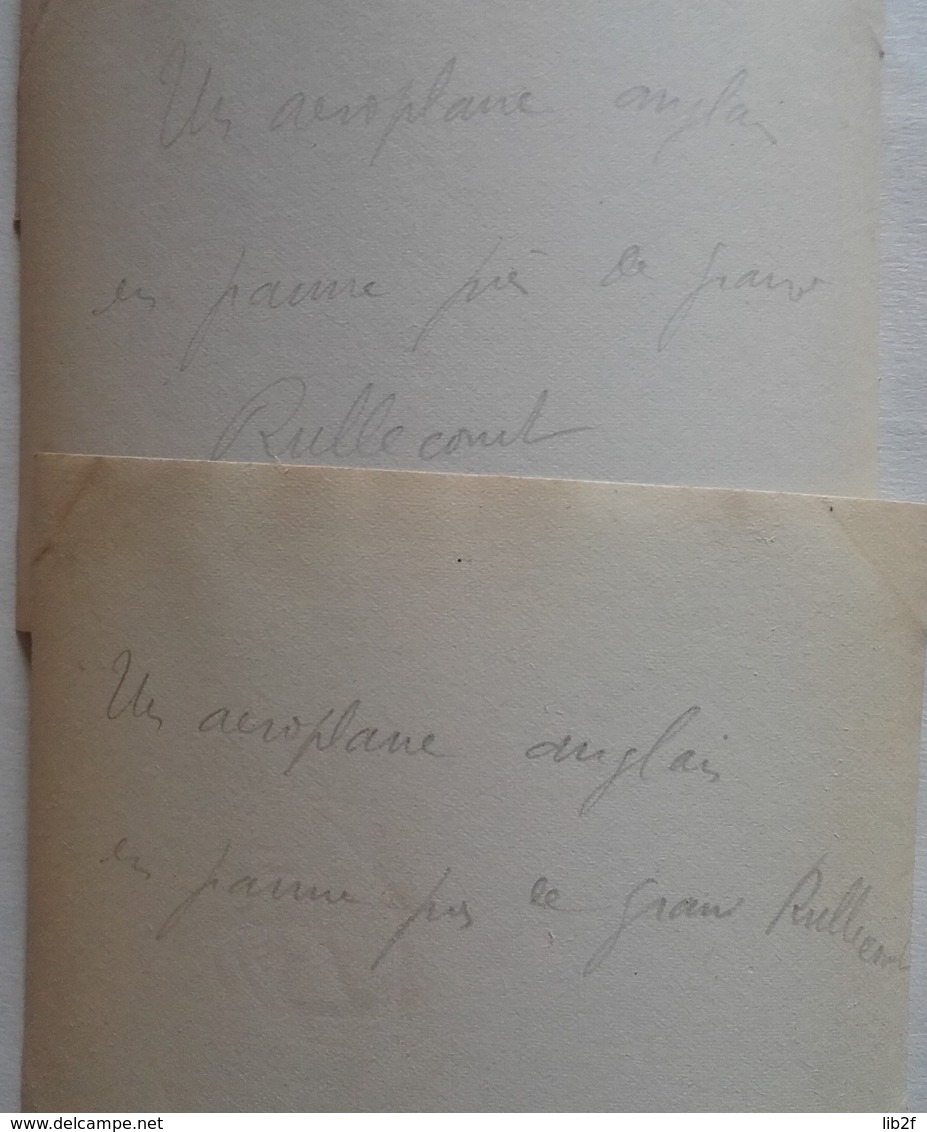 Un aeroplane anglais
en panne près de grand
Rullecourt
Un aeroplane anglais
en panne près de grand Rullecourt
delcampe.net
lib2f